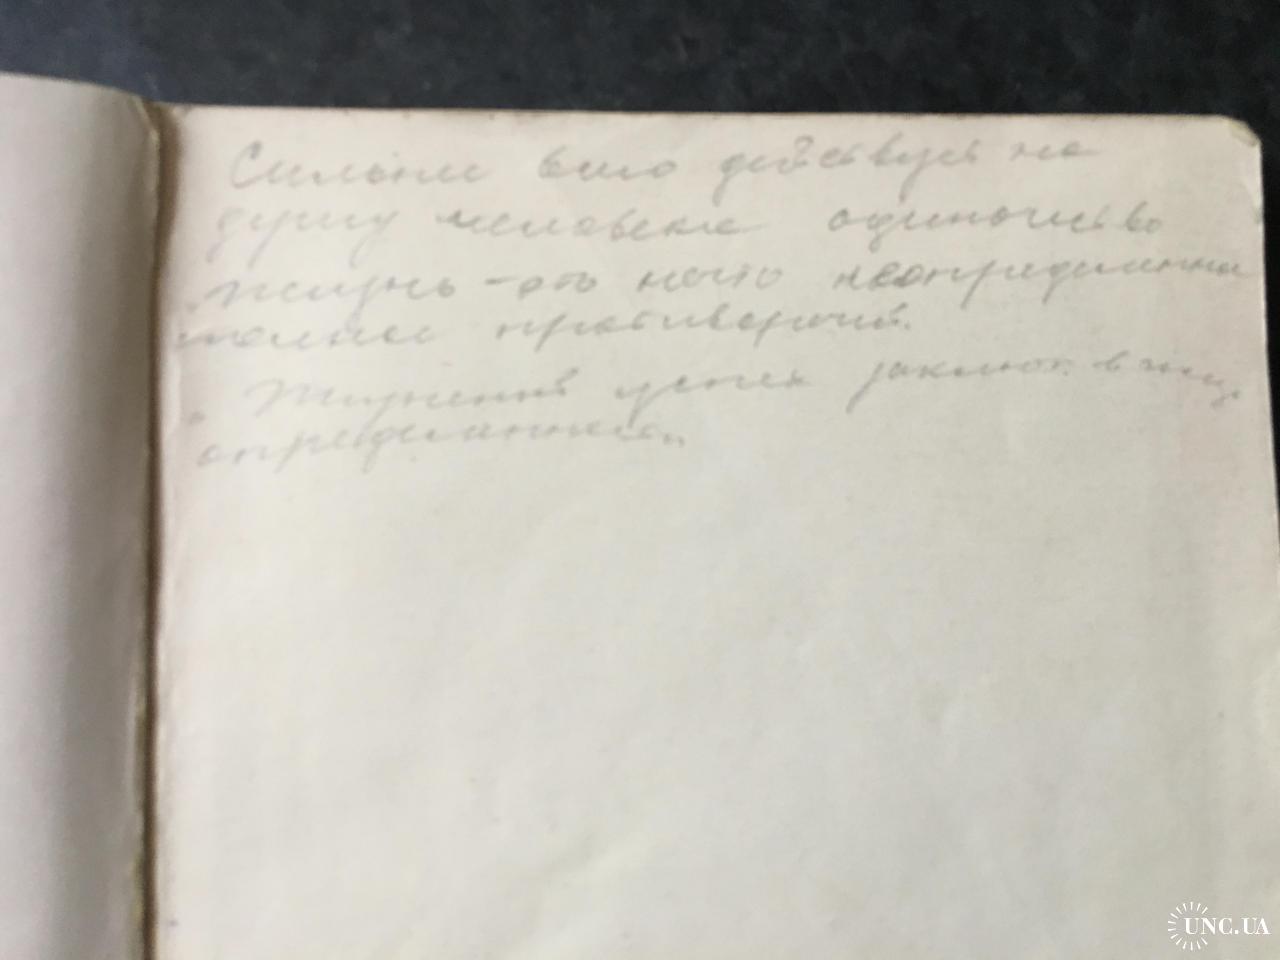 Сильнее всего действует на
душу человека одиночество
Жизнь - это нечто неопределенно
полное противоречий.
"Жизненный успех заключ. в
определенном"
UNC.UA